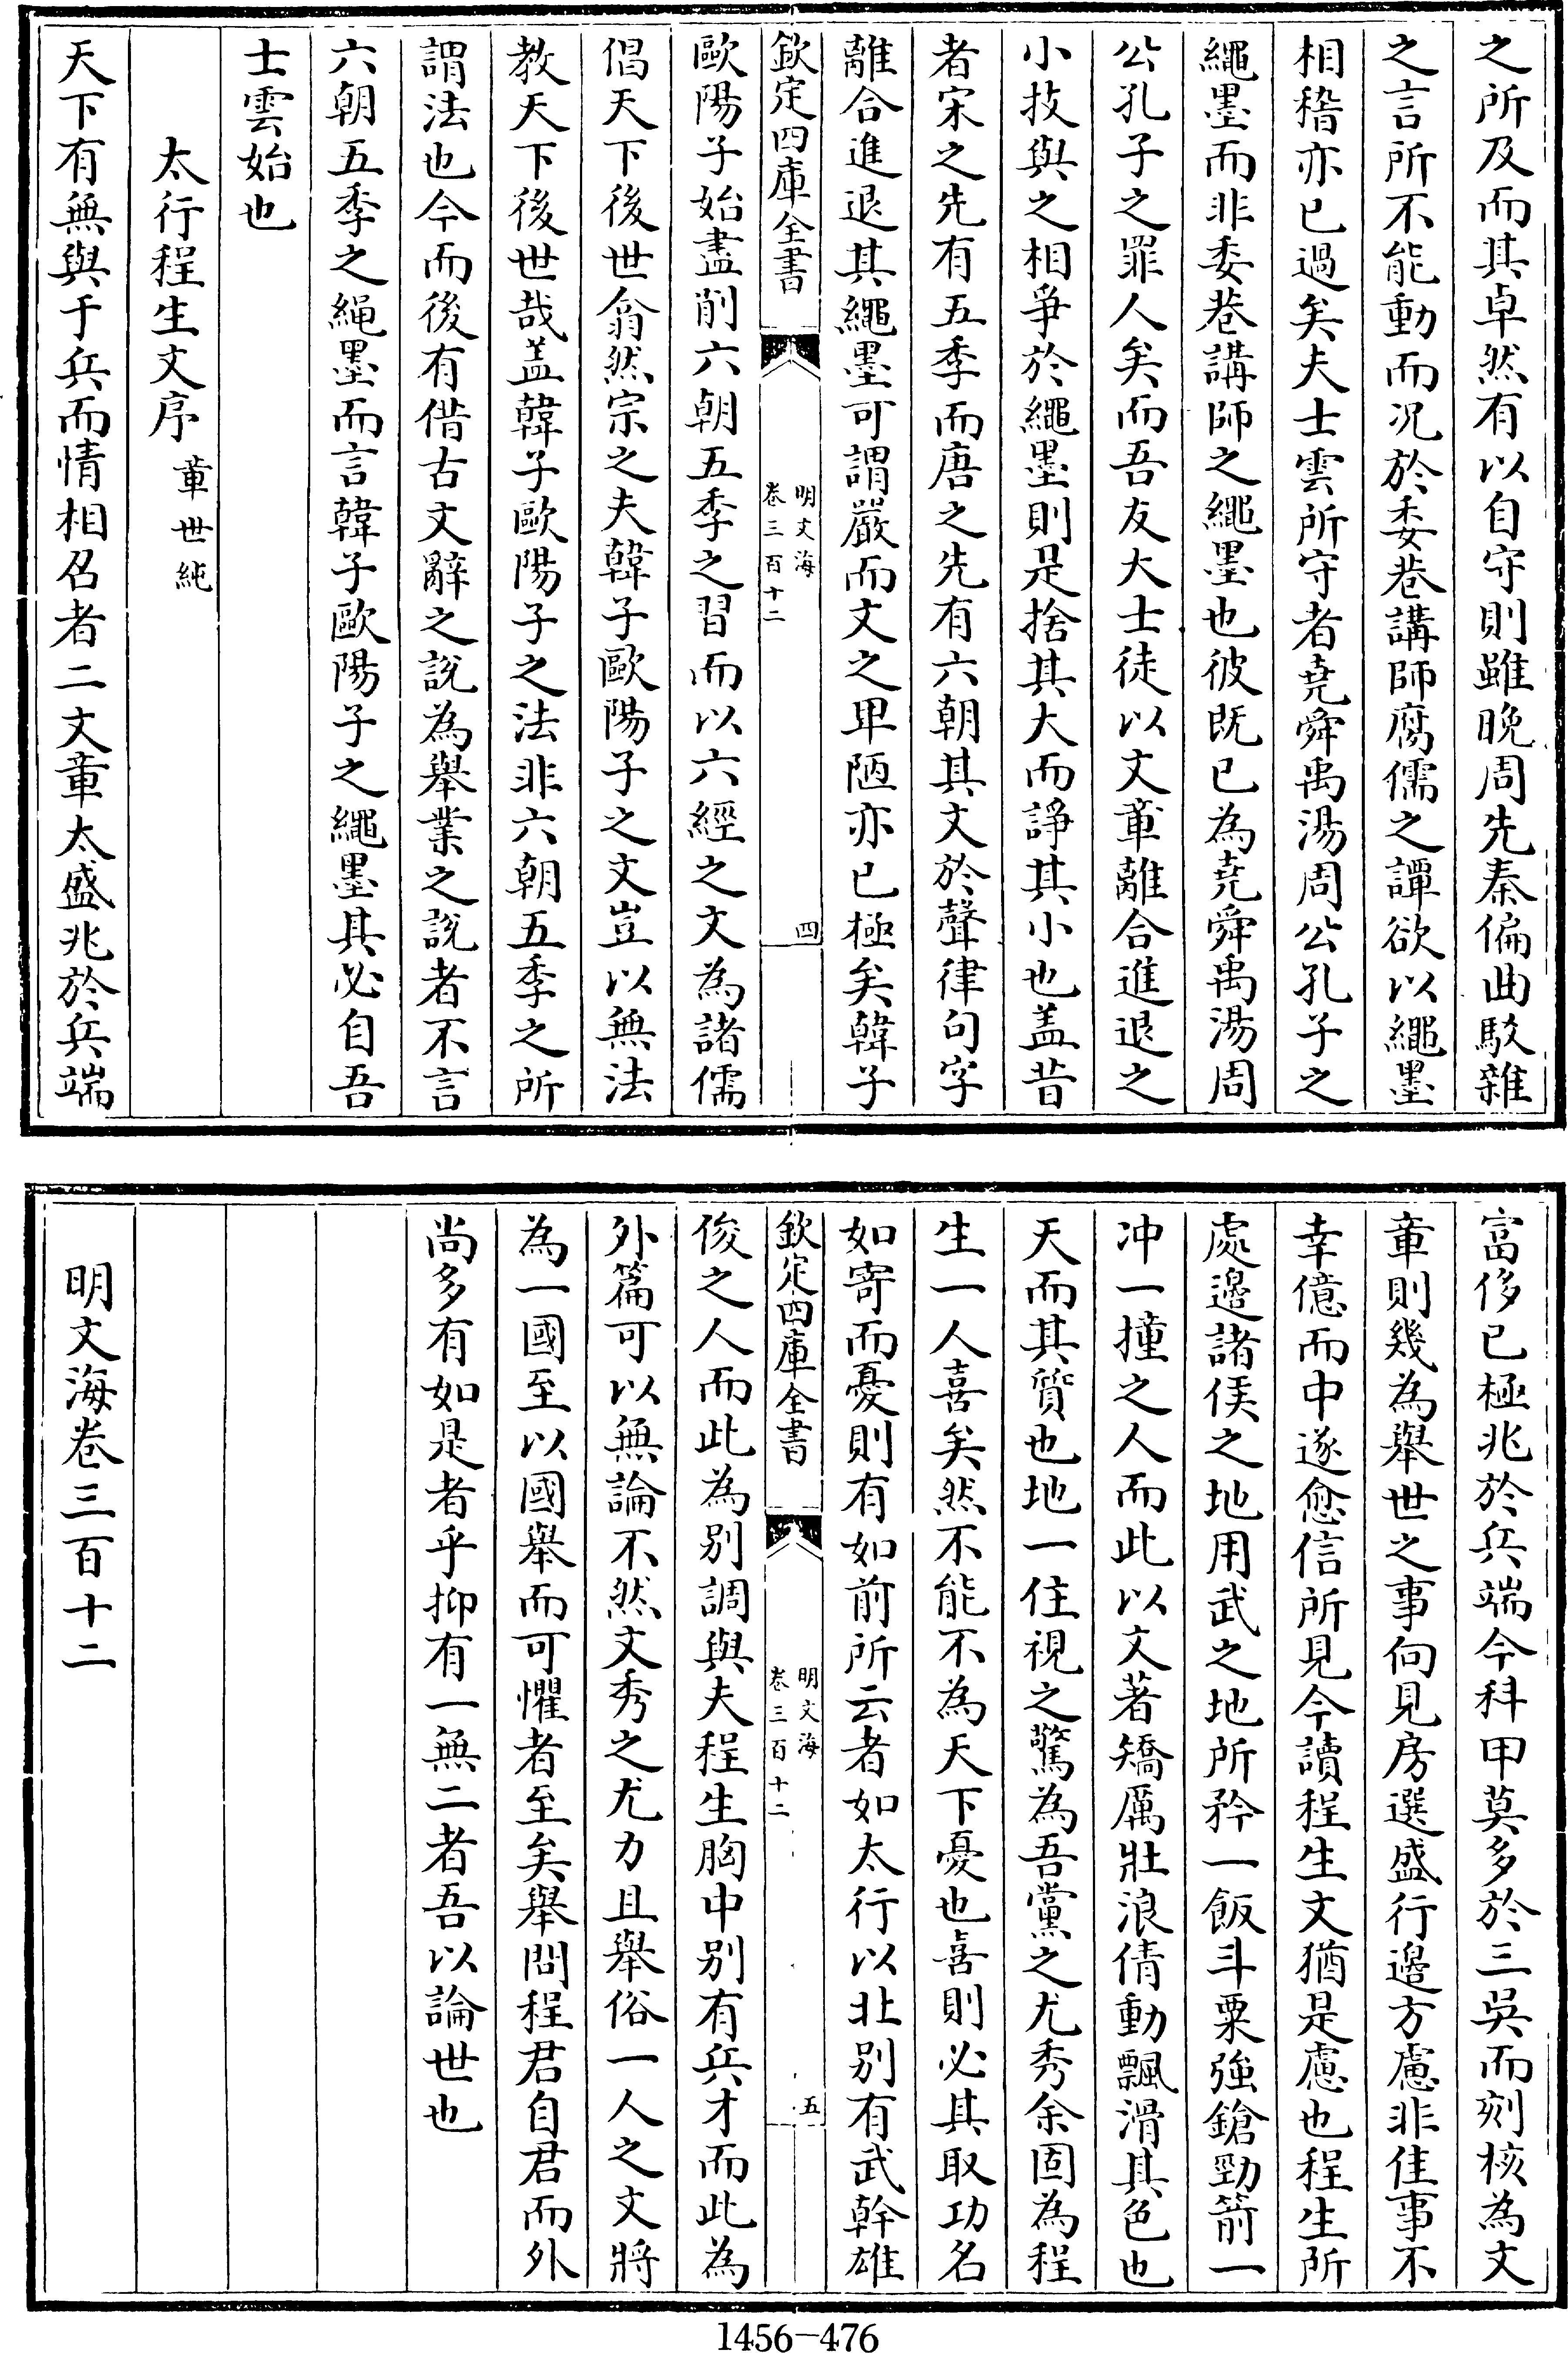 之所及而其卓然有以自守則雖晚周先秦偏曲駁雜
之言所不能動而况於委巷講師腐儒之譚欲以繩墨
相稽亦已過矣夫士雲所守者堯舜禹湯周公孔子之
繩墨而非委巷講師之繩墨也彼既已為堯舜禹湯周
公孔子之罪人矣而吾友大士徒以文章離合進退之
小技與之相爭於繩墨則是捨其大而諍其小也盖昔
者宋之先有五季而唐之先有六朝其文於聲律句字
離合進退其繩墨可謂嚴而文之卑陋亦已極矣韓子
欽定四庫全書
明文海
卷三百十二
四
歐陽子始盡削六朝五季之習而以六經之文為諸儒
倡天下後世翕然宗之夫韓子歐陽子之文豈以無法
教天下後世哉盖韓子歐陽子之法非六朝五季之所
謂法也今而後有偕古文辭之說為舉業之說者不言
六朝五季之繩墨而言韓子歐陽子之繩墨其必自吾
士雲始也
太行程生文序 章世純
天下有無與于兵而情相召者二文章太盛兆於兵端
富侈已極兆於兵端今科甲莫多於三吳而刻核為文
章則幾為舉世之事向見房選盛行邊方慮非佳事不
幸億而中遂愈信所見今讀程生文猶是慮也程生所
處邊諸侯之地用武之地所矜一飯斗粟強鎗勁箭一
冲一撞之人而此以文著矯厲壯浪倩動飄滑其色也
天而其質也地一住視之驚為吾黨之尤秀余固為程
生一人喜矣然不能不為天下憂也喜則必其取功名
如寄而憂則有如前所云者如太行以北别有武幹雄
欽定四庫全書
明文海
卷三百十二
五
俊之人而此為别調與夫程生胸中别有兵才而此為
外篇可以無論不然文秀之尤力且舉俗一人之文將
為一國至以國舉而可懼者至矣舉問程君自君而外
尚多有如是者乎抑有一無二者吾以論世也
明文海卷三百十二
1456-476